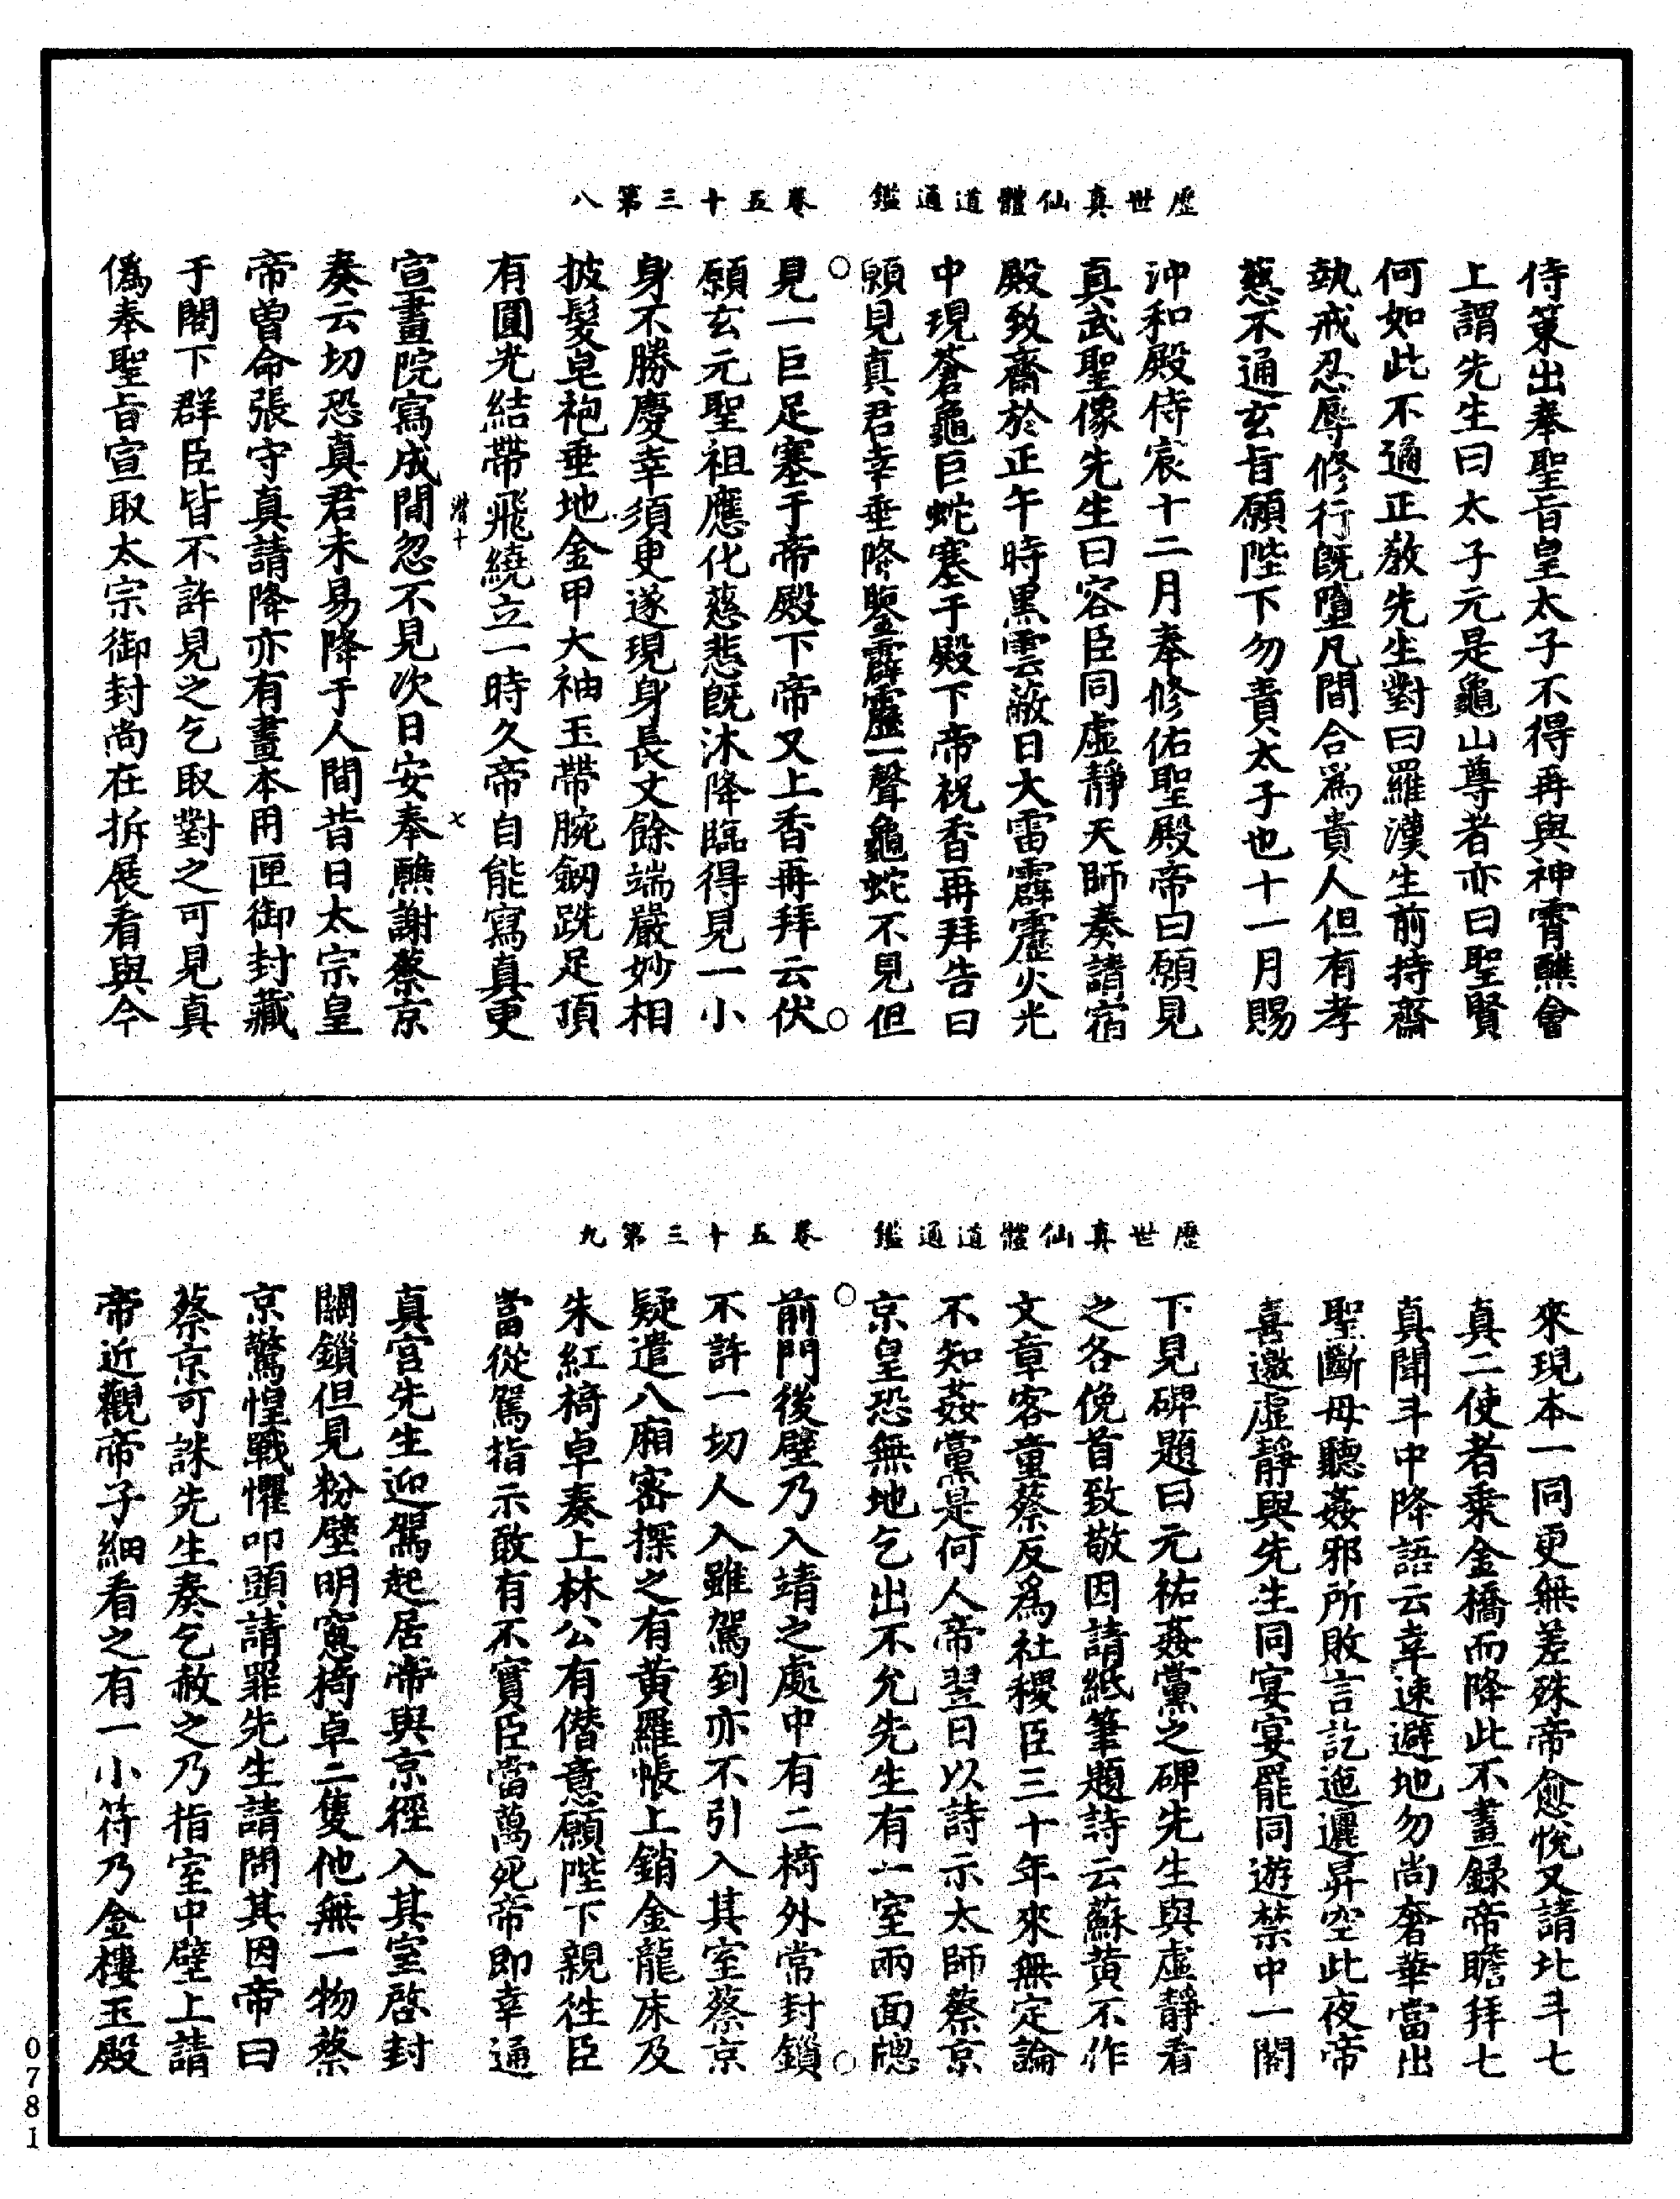 歷世真仙體道通鑑　卷五十三第八
侍宸出奉聖旨皇太子不得再與神霄醮會
上謂先生曰太子元是龜山尊者亦曰聖賢
何如此不通正教先生對曰羅漢生前持齋
執戒忍辱修行既墮凡間合為貴人但有孝
慈不通玄旨願陛下勿責太子也十一月賜
沖和殿侍宸十二月奉修佑聖殿帝曰願見
真武聖像先生曰容臣同虛靜天師奏請宿
殿致齋於正午時黑雲蔽日大雷霹靂火光
中現蒼龜巨蛇塞于殿下帝祝香再拜告曰
願見真君幸垂降鑒霹靂一聲龜蛇不見但
見一巨足塞于帝殿下帝又上香再拜云伏
願玄元聖祖應化慈悲既沐降臨得見一小
身不勝慶幸須更遂現身長丈餘端嚴妙相
披髮皂袍垂地金甲大袖玉帶腕劒跣足頂
有圓光結帶飛繞立一時久帝自能寫真更
宣畫院寫成間忽不見次日安奉醮謝蔡京
奏云切恐真君未易降于人間昔日太宗皇
帝曾命張守真請降亦有畫本用匣御封藏
于閣下群臣皆不許見之乞取對之可見真
僞奉聖旨宣取太宗御封尚在拆展看與今
歷世真仙體道通鑑　卷五十三第九
來現本一同更無差殊帝愈悅又請北斗七
真二使者乘金橋而降此不畫錄帝瞻拜七
真聞斗中降語云幸速避地勿尚奢華當出
聖斷毋聽姦邪所敗言訖迤邐昇空此夜帝
喜邀虛靜與先生同宴宴罷同遊禁中一閣
下見碑題曰元祐姦黨之碑先生與虛靜看
之各俛首致敬因請紙筆題詩云蘇黃不作
文章客童蔡反為社稷臣三十年來無定論
不知姦黨是何人帝翌日以詩示太師蔡京
京皇恐無地乞出不允先生有一室兩面牕
前門後壁乃入靖之處中有二椅外常封鎖
不許一切人入雖駕到亦不引入其室蔡京
疑遣八廂密探之有黃羅帳上銷金龍床及
朱紅椅卓奏上林公有僭意願陛下親往臣
當從駕指示敢有不實臣當萬死帝即幸通
真宮先生迎駕起居帝與京徑入其室啓封
關鎖但見粉壁明窻椅卓二隻他無一物蔡
京驚惶戰懼叩頭請罪先生請問其因帝曰
蔡京可誅先生奏乞赦之乃指室中壁上請
帝近觀帝子細看之有一小符乃金樓玉殿
0781